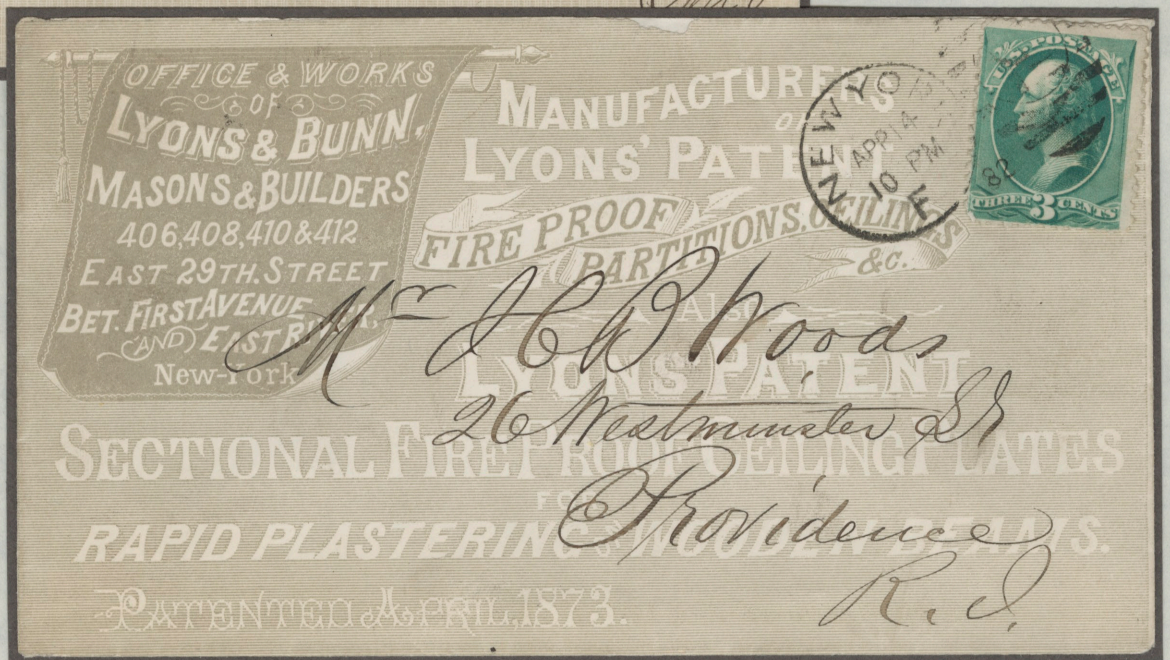 OFFICE & WORKS
OF
LYONS & BUNN,
MASONS & BUILDERS
406, 408, 410 & 412
EAST 29TH. STREET
BET. FIRST AVENUE
AND EAST RIVER,
New-York
MANUFACTURERS
OF
LYONS' PATENT
FIRE PROOF
PARTITIONS, CEILINGS
&c.
Also
LYONS' PATENT
SECTIONAL FIRE PROOF CEILING PLATES
FOR
RAPID PLASTERING & WOODEN BEAMS.
PATENTED APRIL, 1873.
NEW YOR
APR 14
10 PM
82
F
U.S. POSTAGE
THREE 3 CENTS
Mr H C B Woods
26 Westminster St
Providence
R. I.